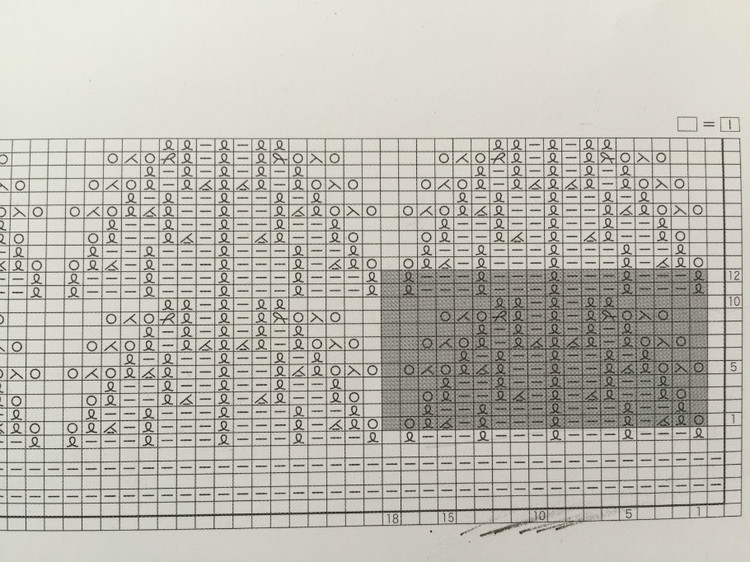 □ = I
12
10
5
1
18 15 10 5 1